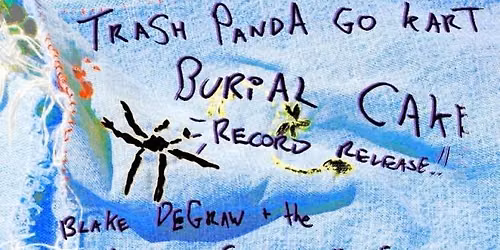 TRASH PANDA GO KART
BURIAL CAKE
RECORD RELEASE..!!
BLAKE DEGRAW + the